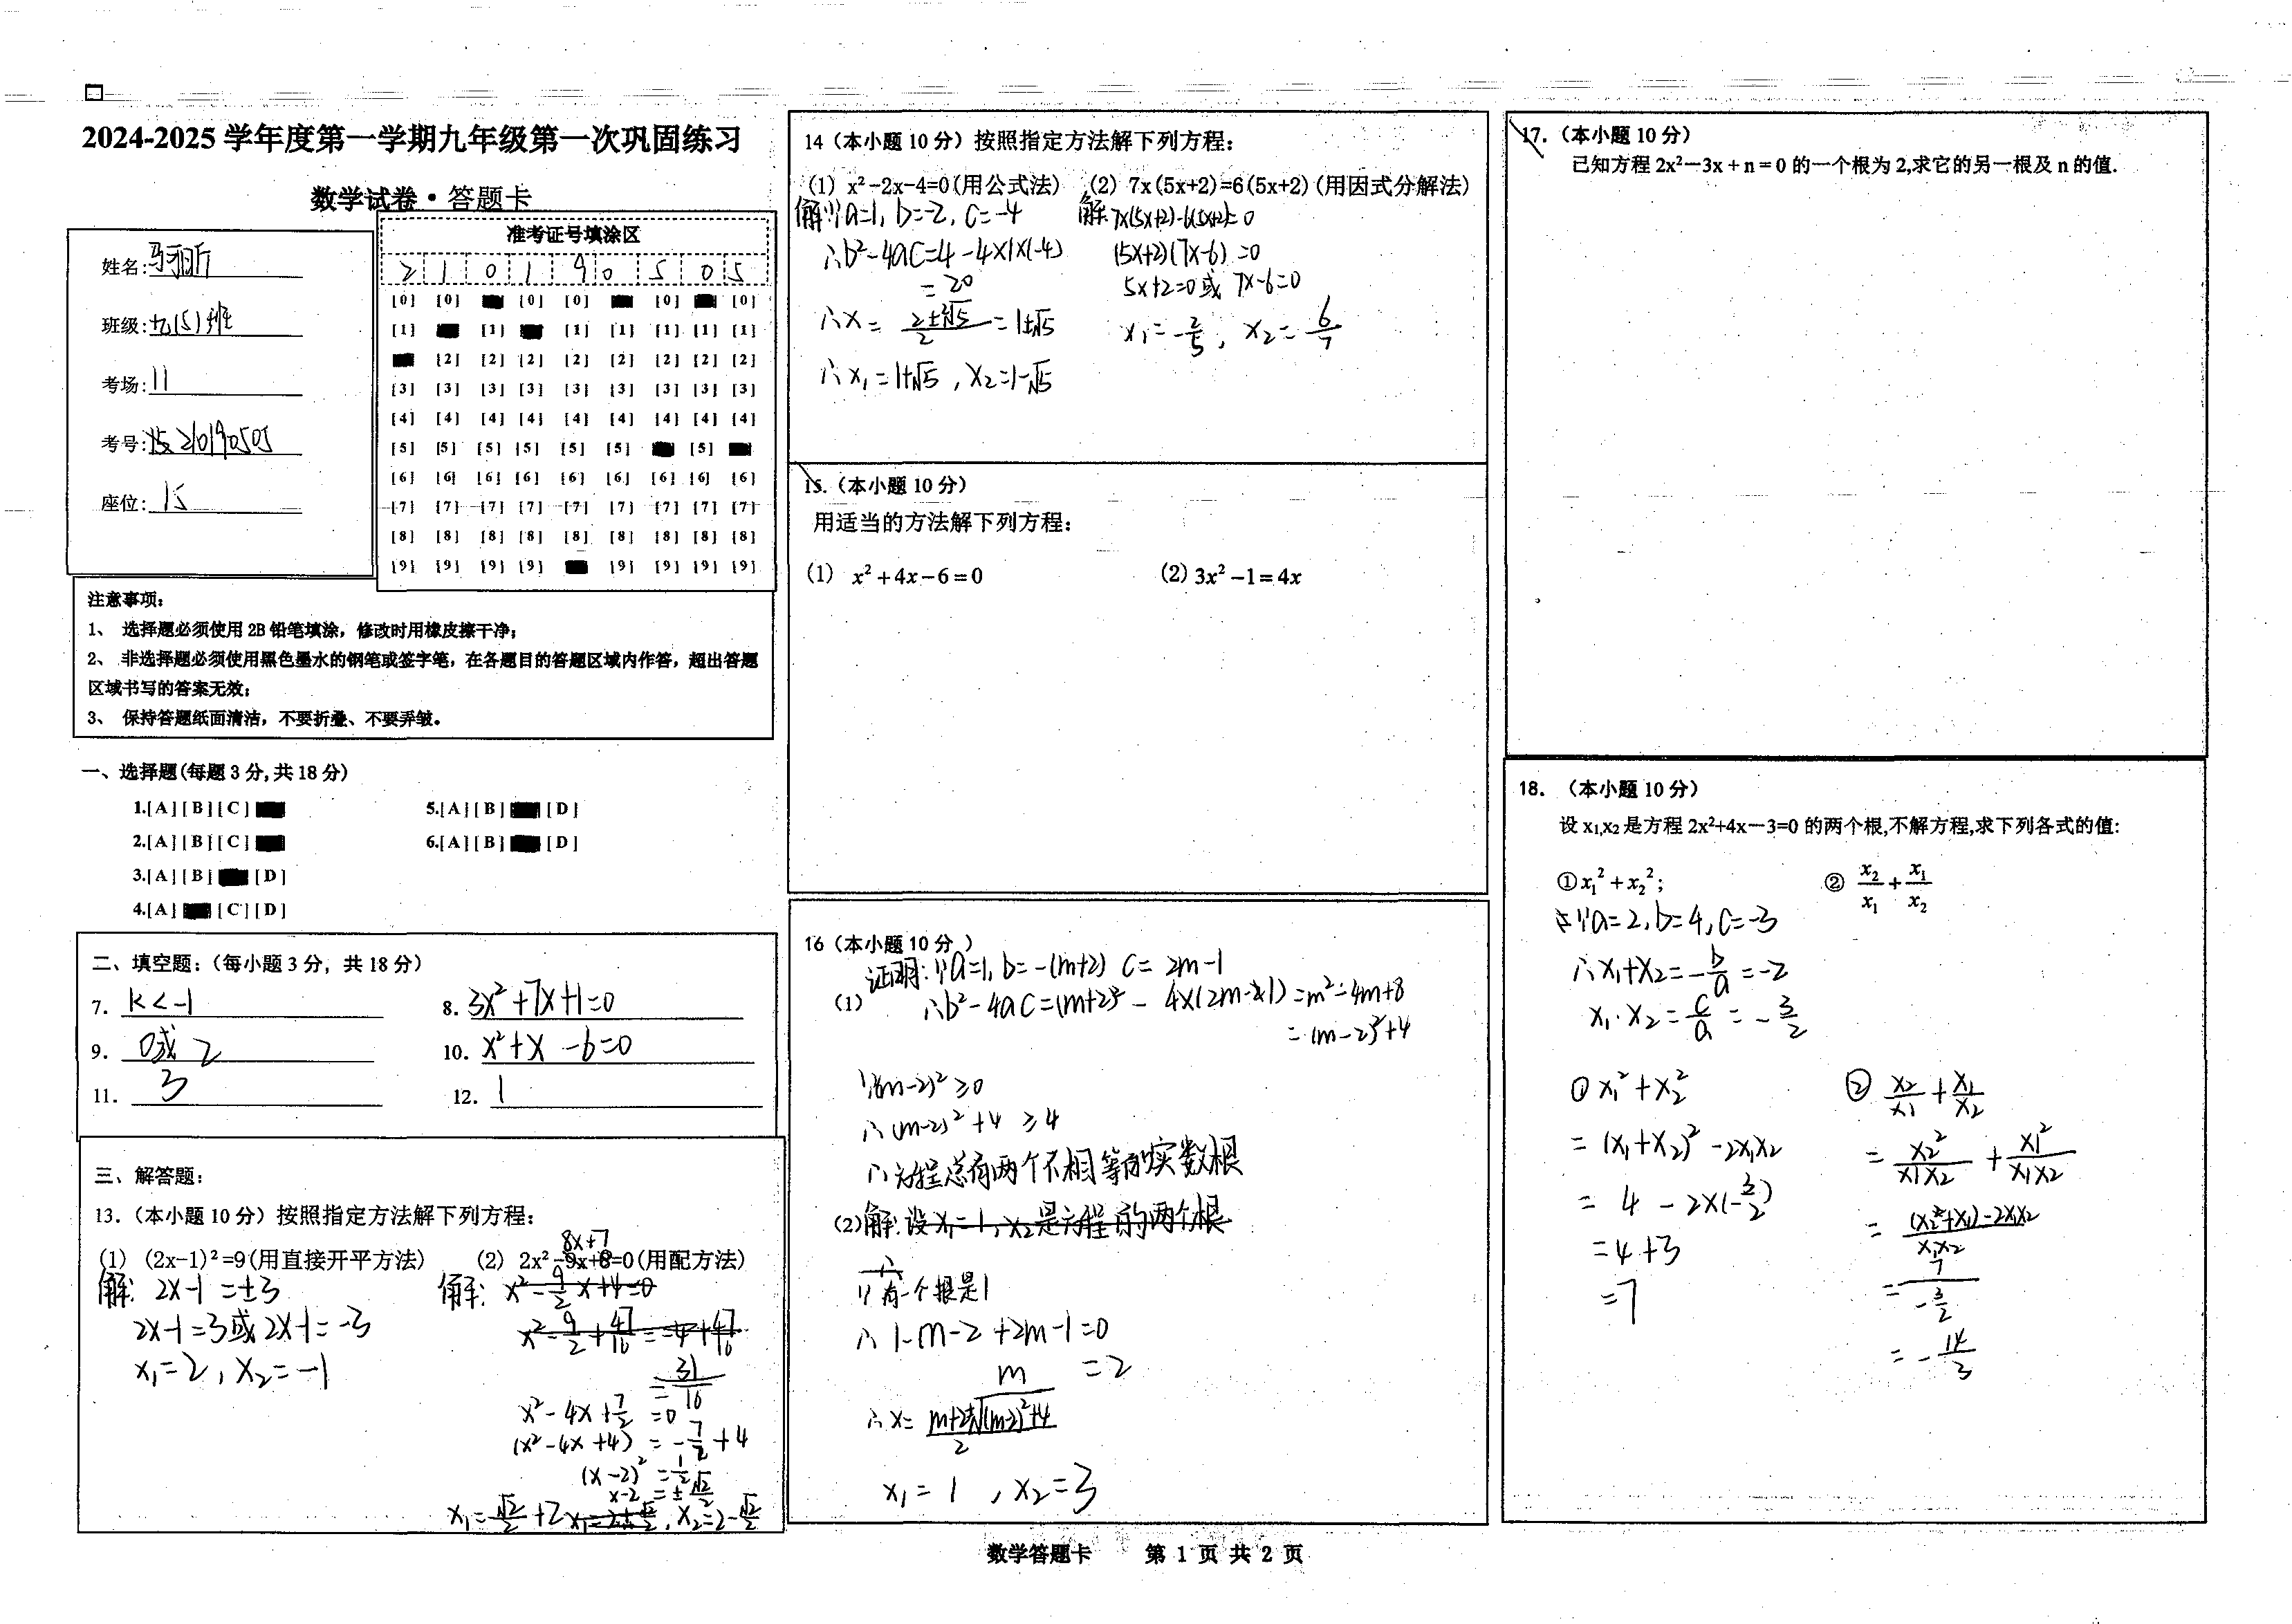 2024-2025 学年度第一学期九年级第一次巩固练习
数学试卷·答题卡
班级: 九(5)班
考场: 11
考号: 210190505
座位: 15
准考证号填涂区
2 1 0 1 9 0 5 0 5
[0] [0] [0] [0] [0] [0]
[1] [1] [1] [1] [1] [1] [1]
[2] [2] [2] [2] [2] [2] [2] [2]
[3] [3] [3] [3] [3] [3] [3] [3] [3]
[4] [4] [4] [4] [4] [4] [4] [4] [4]
[5] [5] [5] [5] [5] [5] [5]
[6] [6] [6] [6] [6] [6] [6] [6] [6]
[7] [7] [7] [7] [7] [7] [7] [7] [7]
[8] [8] [8] [8] [8] [8] [8] [8] [8]
[9] [9] [9] [9] [9] [9] [9] [9]
注意事项:
1、 选择题必须使用 2B 铅笔填涂，修改时用橡皮擦干净；
2、 非选择题必须使用黑色墨水的钢笔或签字笔，在各题目的答题区域内作答，超出答题
区域书写的答案无效；
3、 保持答题纸面清洁，不要折叠、不要弄皱。
一、选择题(每题 3 分,共 18 分)
1.[A][B][C]
5.[A][B] [D]
2.[A][B][C]
6.[A][B] [D]
3.[A][B] [D]
4.[A] [C][D]
二、填空题:（每小题 3 分，共 18 分）
7. k<-1
8. 3x²+7x+1=0
9. 0或2
10. x²+x-6=0
11. 3
12. 1
三、解答题:
13.（本小题 10 分）按照指定方法解下列方程:
8x+7
(1) (2x-1)²=9(用直接开平方法) (2) 2x²-9x+8=0(用配方法)
解: 2x-1=±3
2x-1=3或2x-1=-3
x₁=2, x₂=-1
解: x²-9/2x+4=0
x²-9/2+47/16=-4+47/16
=31/16
x²-4x+7/2=0
(x²-4x+4)=-7/2+4
(x-2)²=1/2
x-2=±√2/2
x₁=√2/2+2 x₁=2+√2/2, x₂=2-√2/2
14（本小题 10 分）按照指定方法解下列方程:
(1) x²-2x-4=0(用公式法) (2) 7x(5x+2)=6(5x+2)(用因式分解法)
解:∵a=1, b=-2, c=-4
∴b²-4ac=4-4×1×(-4)
=20
∴x=(2±2√5)/2=1±√5
∴x₁=1+√5, x₂=1-√5
解:7x(5x+2)-6(5x+2)=0
(5x+2)(7x-6)=0
5x+2=0或 7x-6=0
x₁=-2/5, x₂=6/7
15.（本小题 10 分）
用适当的方法解下列方程:
(1) x²+4x-6=0 (2) 3x²-1=4x
16（本小题 10 分 ）
证明:∵a=1, b=-(m+2) c=2m-1
(1) ∴b²-4ac=(m+2)²-4×(2m-1)=m²-4m+8
=(m-2)²+4
∵(m-2)²≥0
∴(m-2)²+4≥4
∴方程总有两个不相等的实数根
(2)解:设x₁=1, x₂是方程的两个根
∴
∵有一个根是1
∴1-m-2+2m-1=0
m=2
∴x=(m+2±√(m-2)²+4)/2
x₁=1, x₂=3
17.（本小题 10 分）
已知方程 2x²-3x+n=0 的一个根为 2,求它的另一根及 n 的值.
18. （本小题 10 分）
设 x₁,x₂ 是方程 2x²+4x-3=0 的两个根,不解方程,求下列各式的值:
①x₁²+x₂²; ② x₂/x₁+x₁/x₂
∵a=2, b=4, c=-3
∴x₁+x₂=-b/a=-2
x₁·x₂=c/a=-3/2
①x₁²+x₂²
=(x₁+x₂)²-2x₁x₂
=4-2×(-3/2)
=4+3
=7
② x₂/x₁+x₁/x₂
=x₂²/x₁x₂+x₁²/x₁x₂
=(x₂+x₁)²-2x₁x₂/x₁x₂
=7/(-3/2)
=-14/3
数学答题卡 第 1 页 共 2 页